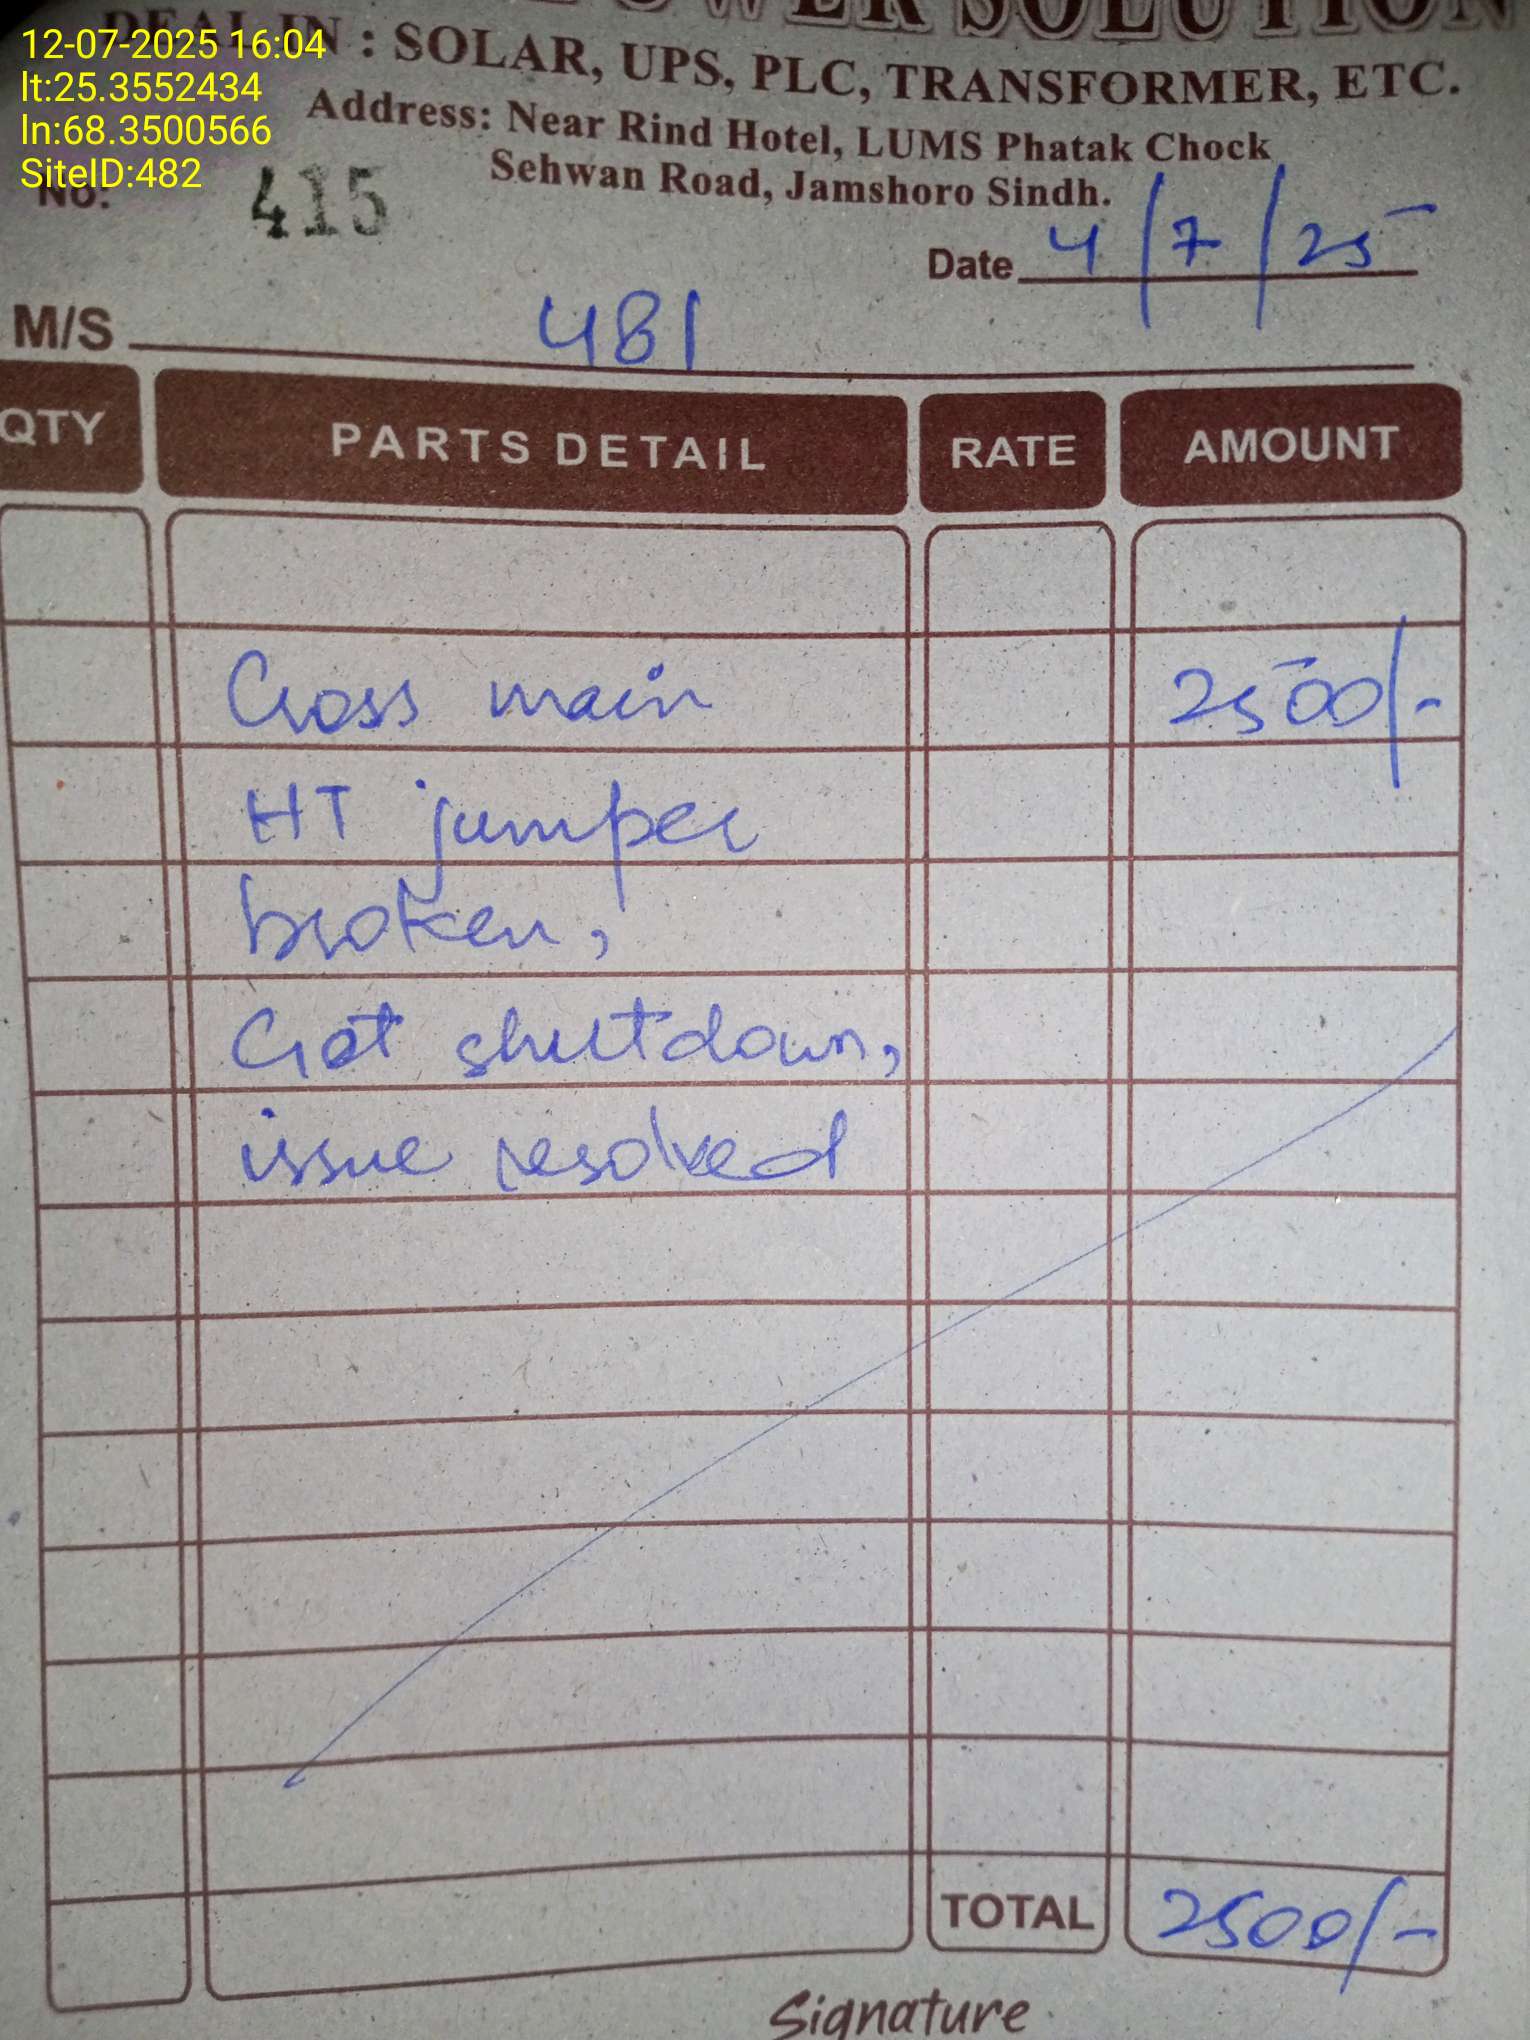 POWER SOLUTION
DEAL IN : SOLAR, UPS, PLC, TRANSFORMER, ETC.
Address: Near Rind Hotel, LUMS Phatak Chock
Sehwan Road, Jamshoro Sindh.
12-07-2025 16:04
lt:25.3552434
ln:68.3500566
SiteID:482
No. 415
Date 4/7/25
M/S 481
QTY PARTS DETAIL RATE AMOUNT
Cross main 2500/-
HT jumper
broken,
Get shutdown,
issue resolved
TOTAL 2500/-
Signature